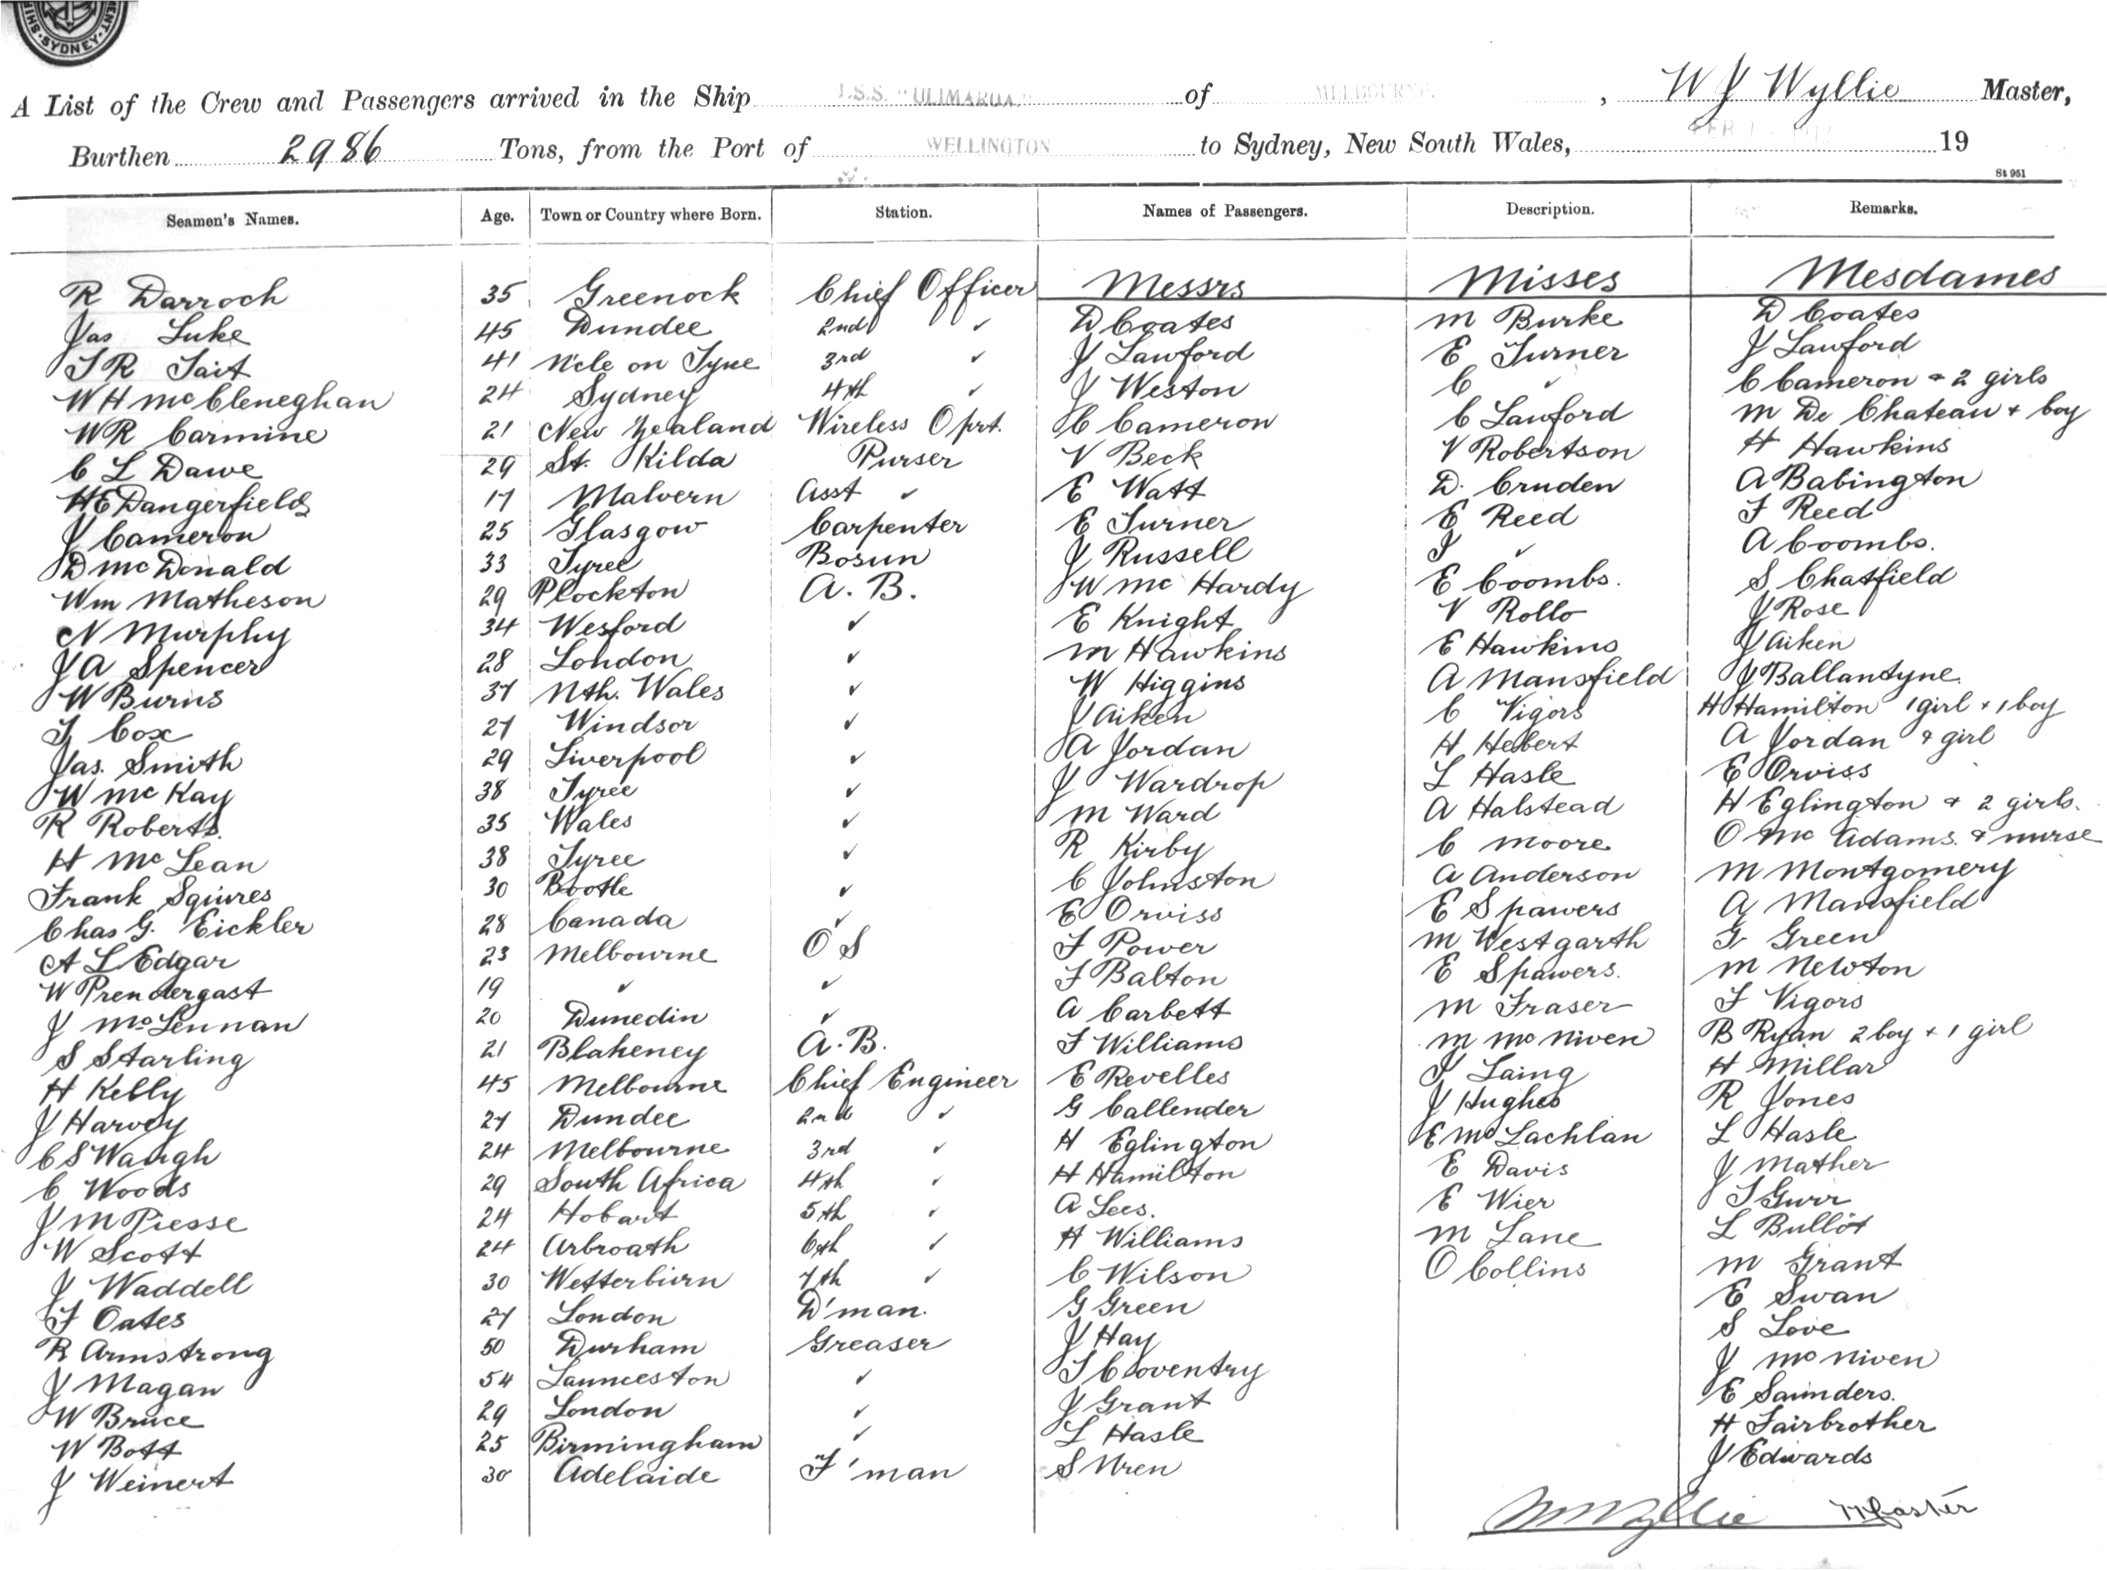 SYDNEY
A List of the Crew and Passengers arrived in the Ship T.S.S. "ULIMAROA." of MELBOURNE, W J Wyllie Master,
Burthen 2986 Tons, from the Port of WELLINGTON to Sydney, New South Wales, FEB 19
St 951
Seamen's Names. Age. Town or Country where Born. Station. Names of Passengers. Description. Remarks.
R Darroch 35 Greenock Chief Officer Messrs Misses Mesdames
Jas Luke 45 Dundee 2nd ✓ D Coates M Burke D Coates
T R Tait 41 N'cle on Tyne 3rd ✓ J Lawford E Turner J Lawford
W H McCleneghan 24 Sydney 4th ✓ J Weston C ✓ C Cameron + 2 girls
W R Carmine 21 New Zealand Wireless Oprt. C Cameron C Lawford M De Chateau + boy
C L Dawe 29 St. Kilda Purser V Beck V Robertson H Hawkins
H E Dangerfield 17 Malvern Asst ✓ E Watt D. Cruden A Babington
J Cameron 25 Glasgow Carpenter E Turner E Reed F Reed
D McDonald 33 Tyree Bosun J Russell I ✓ A Coombs.
Wm Matheson 29 Plockton A. B. W McHardy E Coombs. S Chatfield
N Murphy 34 Wesford ✓ E Knight V Rollo J Rose
J A Spencer 28 London ✓ M Hawkins E Hawkins J Aiken
W Burns 37 Nth. Wales ✓ W Higgins A Mansfield J Ballantyne
T Cox 27 Windsor ✓ J Aiken C Vigors H Hamilton 1 girl + 1 boy
Jas. Smith 29 Liverpool ✓ A Jordan H Hebert A Jordan + girl
W McKay 38 Tyree ✓ J Wardrop L Hasle E Orviss
R Roberts. 35 Wales ✓ M Ward A Halstead H Eglington + 2 girls.
H McLean 38 Tyree ✓ R Kirby C Moore O McAdams. + nurse
Frank Sqiures 30 Bootle ✓ C Johnston A Anderson M Montgomery
Chas G. Eickler 28 Canada ✓ E Orviss E Spawers A Mansfield
A L Edgar 23 Melbourne O S F Power M Westgarth G Green
W Prendergast 19 ✓ ✓ F Balton E Spawers. M Newton
J McLennan 20 Dunedin ✓ A Carbett M Fraser F Vigors
S Starling 21 Blakeney A. B. F Williams M McNiven B Ryan 2 boy + 1 girl
H Kelly 45 Melbourne Chief Engineer E Revelles I Laing H Millar
J Harvey 27 Dundee 2nd ✓ G Callender J Hughes R Jones
C S Waugh 24 Melbourne 3rd ✓ H Eglington E McLachlan L Hasle
C Woods 29 South Africa 4th ✓ H Hamilton E Davis J Mather
J M Piesse 24 Hobart 5th ✓ A Lees. E Wier T Gurr
W Scott 24 Arbroath 6th ✓ H Williams M Lane L Bullot
J Waddell 30 Wetterburn 7th ✓ C Wilson O Collins M Grant
F Oates 27 London D'man. G Green E Swan
R Armstrong 50 Durham Greaser J Hay S Love
J Magan 54 Launceston ✓ T Coventry J McNiven
W Bruce 29 London ✓ J Grant E Saunders.
W Bott 25 Birmingham ✓ L Hasle H Fairbrother
J Weinert 30 Adelaide F'man S Uren J Edwards
W J Wyllie Master